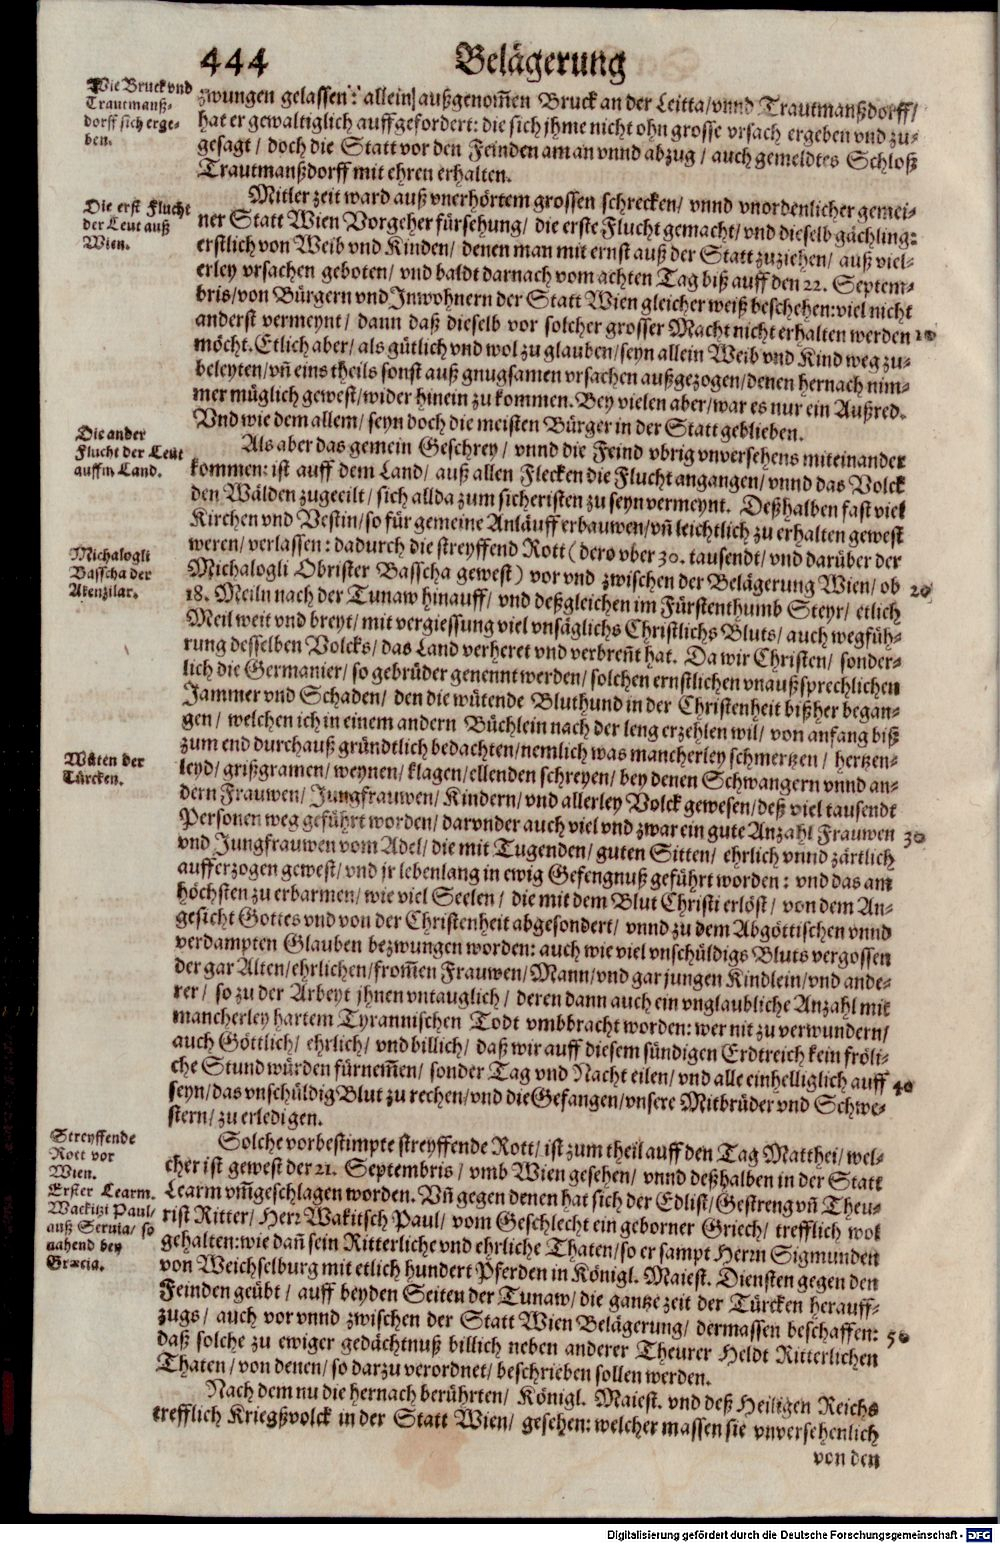 444 Belägerung
Wie Bruck vnd
Trautmanß-
dorff sich erge-
ben.
zwungen gelassen: allein außgenom̃en Bruck an der Leitta/ vnnd Trautmanßdorff/
hat er gewaltiglich auffgefordert: die sich jhme nicht ohn grosse vrsach ergeben vnd zu-
gesagt / doch die Statt vor den Feinden am an vnnd abzug / auch gemeldtes Schloß
Trautmanßdorff mit ehren erhalten.
Die erst Flucht
der Leut auß
Wien.
Mitler zeit ward auß vnerhörtem grossen schrecken/ vnnd vnordenlicher gemei-
ner Statt Wien Vorgeher fürsehung/ die erste Flucht gemacht/ vnd dieselb gächling:
erstlich von Weib vnd Kinden/ denen man mit ernst auß der Statt zuziehen/ auß viel-
erley vrsachen geboten/ vnd baldt darnach vom achten Tag biß auff den 22. Septem-
bris/ von Bürgern vnd Inwohnern der Statt Wien gleicher weiß beschehen: viel nicht
anderst vermeynt/ dann daß dieselb vor solcher grosser Macht nicht erhalten werden 10
möcht. Etlich aber/ als gütlich vnd wol zu glauben/ seyn allein Weib vnd Kind weg zu-
beleyten/ vñ eins theils sonst auß gnugsamen vrsachen außgezogen/ denen hernach nim-
mer müglich gewest/ wider hinein zu kommen. Bey vielen aber/ war es nur ein Außred.
Vnd wie dem allem/ seyn doch die meisten Bürger in der Statt geblieben.
Die ander
Flucht der Leut
auffm Land.
Als aber das gemein Geschrey/ vnnd die Feind vbrig vnversehens miteinander
kommen: ist auff dem Land/ auß allen Flecken die Flucht angangen/ vnnd das Volck
den Wälden zugeeilt/ sich allda zum sicheristen zu seyn vermeynt. Deßhalben fast viel
Kirchen vnd Vestin/ so für gemeine Anläuff erbauwen/ vñ leichtlich zu erhalten gewest
weren/ verlassen: dadurch die streyffend Rott (dero vber 30. tausendt/ vnd darüber der
Michalogli
Basscha der
Akenzilar.
Michalogli Obrister Basscha gewest) vor vnd zwischen der Belägerung Wien/ ob 20
18. Meiln nach der Tunaw hinauff/ vnd deßgleichen im Fürstenthumb Steyr/ etlich
Meil weit vnd breyt/ mit vergiessung viel vnsäglichs Christlichs Bluts/ auch wegfüh-
rung desselben Volcks/ das Land verheret vnd verbreñt hat. Da wir Christen/ sonder-
lich die Germanier/ so gebrüder genennt werden/ solchen ernstlichen vnaußsprechlichen
Jammer vnd Schaden/ den die wütende Bluthund in der Christenheit bißher began-
gen/ welchen ich in einem andern Büchlein nach der leng erzehlen wil/ von anfang biß
zum end durchauß gründtlich bedachten/ nemlich was mancherley schmertzen/ hertzen-
Wüten der
Türcken.
leyd/ grißgramen/ weynen/ klagen/ ellenden schreyen/ bey denen Schwangern vnnd an-
dern Frauwen/ Jungfrauwen/ Kindern/ vnd allerley Volck gewesen/ deß viel tausendt
Personen weg geführt worden/ darvnder auch viel vnd zwar ein gute Anzahl Frauwen 30
vnd Jungfrauwen vom Adel/ die mit Tugenden/ guten Sitten/ ehrlich vnnd zärtlich
aufferzogen gewest/ vnd jr lebenlang in ewig Gefengnuß geführt worden: vnd das am
höchsten zu erbarmen/ wie viel Seelen/ die mit dem Blut Christi erlöst/ von dem An-
gesicht Gottes vnd von der Christenheit abgesondert/ vnnd zu dem Abgöttischen vnnd
verdampten Glauben bezwungen worden: auch wie viel vnschüldigs Bluts vergossen
der gar Alten/ ehrlichen/ from̃en Frauwen/ Mann/ vnd gar jungen Kindlein/ vnd ande-
rer/ so zu der Arbeyt jhnen vntauglich/ deren dann auch ein vnglaubliche Anzahl mit
mancherley hartem Tyrannischen Todt vmbbracht worden: wer nit zu verwundern/
auch Göttlich/ ehrlich/ vnd billich/ daß wir auff diesem sündigen Erdtreich kein fröli-
che Stund würden fürnem̃en/ sonder Tag vnd Nacht eilen/ vnd alle einhelliglich auff 40
seyn/ das vnschüldig Blut zu rechen/ vnd die Gefangen/ vnsere Mitbrüder vnd Schwe-
stern/ zu erledigen.
Streyffende
Rott vor
Wien.
Erster Learm.
Wackitzi Paul/
auß Seruia/ so
nahend bey
Græcia.
Solche vorbestimpte streyffende Rott/ ist zum theil auff den Tag Matthei/ wel-
cher ist gewest der 21. Septembris/ vmb Wien gesehen/ vnnd deßhalben in der Statt
Learm vm̃geschlagen worden. Vñ gegen denen hat sich der Edlist/ Gestreng vñ Theu-
rist Ritter/ Herr Wakitsch Paul/ vom Geschlecht ein geborner Griech/ trefflich wol
gehalten: wie dañ sein Ritterliche vnd ehrliche Thaten/ so er sampt Herrn Sigmunden
von Weichselburg mit etlich hundert Pferden in Königl. Maiest. Diensten gegen den
Feinden geübt/ auff beyden Seiten der Tunaw/ die gantze zeit der Türcken herauff-
zugs/ auch vor vnnd zwischen der Statt Wien Belägerung/ dermassen beschaffen: 50
daß solche zu ewiger gedächtnuß billich neben anderer Theurer Heldt Ritterlichen
Thaten/ von denen/ so darzu verordnet/ beschrieben sollen werden.
Nach dem nu die hernach berührten/ Königl. Maiest. vnd deß Heiligen Reichs
trefflich Kriegßvolck in der Statt Wien/ gesehen: welcher massen sie vnversehenlich
von den
Digitalisierung gefördert durch die Deutsche Forschungsgemeinschaft - DFG